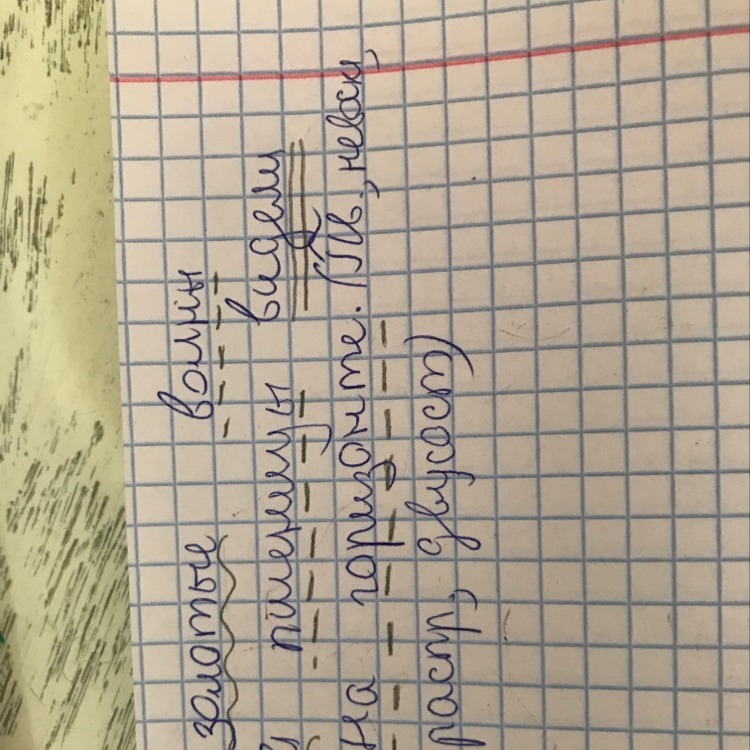 золотые волны
пшеницы видели
на горизонте. (Пв., невоскл,
распр, двусост)